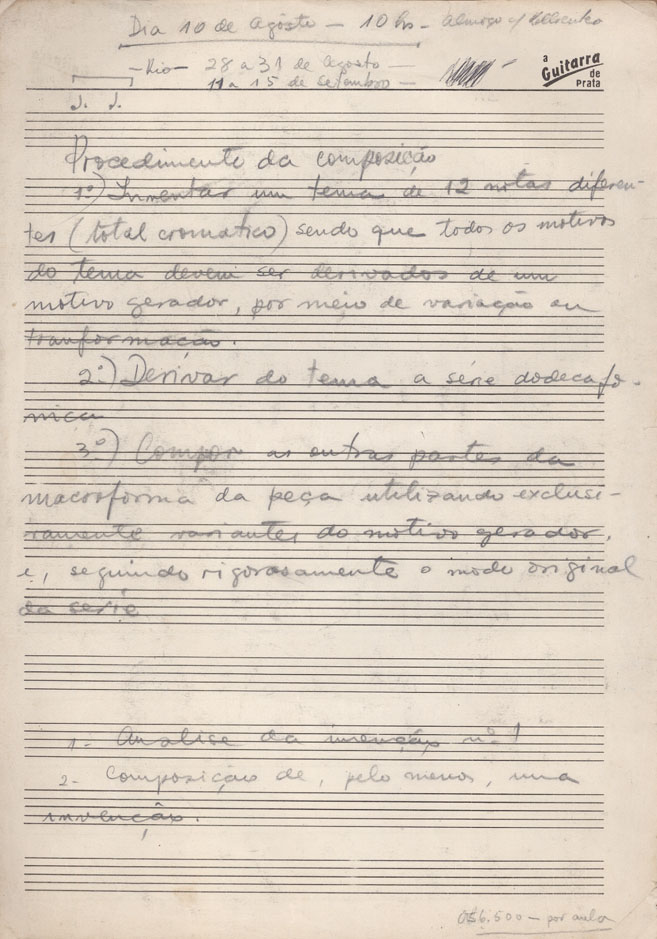 Dia 10 de Agosto – 10 hs – Almoço c/
– Rio – 28 a 31 de Agosto –
11 a 15 de Setembro –
a
Guitarra
de
Prata
Procedimento da composição
1º) Inventar um tema de 12 notas diferen-
tes (total cromatico) sendo que todos os motivos
do tema devem ser derivados de um
motivo gerador, por meio de variação ou
tranformação.
2º) Derivar do tema a série dodecafô-
nica
3º) Compor as outras partes da
macroforma da peça utilizando exclusi-
vamente variantes do motivo gerador,
e, seguindo rigorosamente o modo original
da serie
1- Analise da invenção nº 1
2- Composição de, pelo menos, uma
invenção.
6.500 – por aula